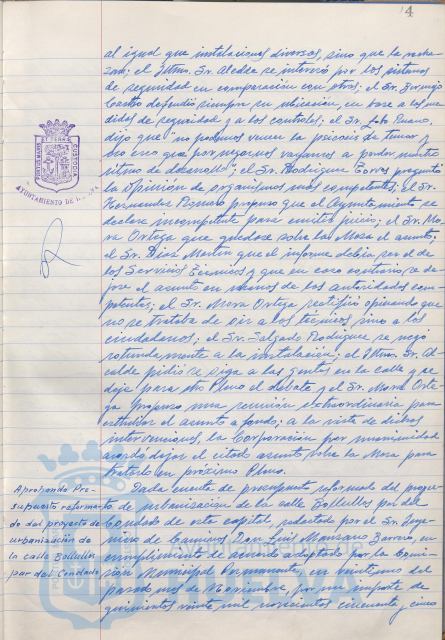 4
al igual que instalaciones diversos, sino que la recha-
zan; el Iltmo. Sr. Alcalde se interesó por los sistemas
de seguridad en comparación con otros; el Sr.
Castro defendió siempre su ubicación, en base a las me-
didas de seguridad y a los controles; el Sr.
dijo que "no podemos vencer la psicosis de temor y
no creo que por negarnos vayamos a perder nuestro
ritmo de desarrollo"; el Sr. Rodríguez Torres preguntó
la opinión de organismos más competentes; el Sr.
Hernández propuso que el Ayuntamiento se
declare incompetente para emitir juicio; el Sr. Mo-
ra Ortega que quedase sobre la Mesa el asunto;
el Sr. Díaz Martín que el informe debía ser el de
los Servicios Técnicos y que en caso contrario se de-
jase el asunto en manos de las autoridades com-
petentes; el Sr. Mora Ortega rectificó opinando que
no se trataba de oir a los técnicos sino a los
ciudadanos; el Sr. Salgado Rodríguez se negó
rotundamente a la instalación; el Iltmo. Sr. Al-
calde pidió se oiga a las gentes en la calle y se
deje para otro Pleno el debate, y el Sr. Mora Orte-
ga propuso una reunión extraordinaria para
estudiar el asunto a fondo; a la vista de dichas
intervenciones, la Corporación por unanimidad
acordó dejar el citado asunto sobre la Mesa para
tratarlo en próximo Pleno.
Dada cuenta de presupuesto reformado del proyec-
to de urbanización de la calle Bollullos par del
Condado de esta capital, redactado por el Sr. Inge-
niero de Caminos Don Luis Manzano, en
cumplimiento de acuerdo adoptado por la Comi-
sión Municipal Permanente, en veintiuno del
pasado mes de Noviembre, por un importe de
quinientas veinte mil novecientas cincuenta y cinco
Aprobando Pre-
supuesto reforma-
do del proyecto de
urbanización de
la calle Bollullos
par del Condado
PORTUS MARIS
ET TERRAE
CUSTODIA
AYUNTAMIENTO DE HUELVA
HUELVA